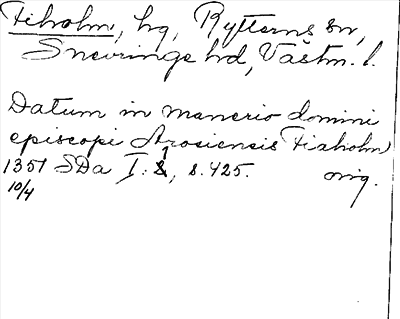 Fiholm, hg, Rytterns sn,
Snevringe hd, Västm. l.
Datum in manerio domini
episcopi Arosiensis Fixholm
1351 SDa I. 2, s. 425. orig.
10/4